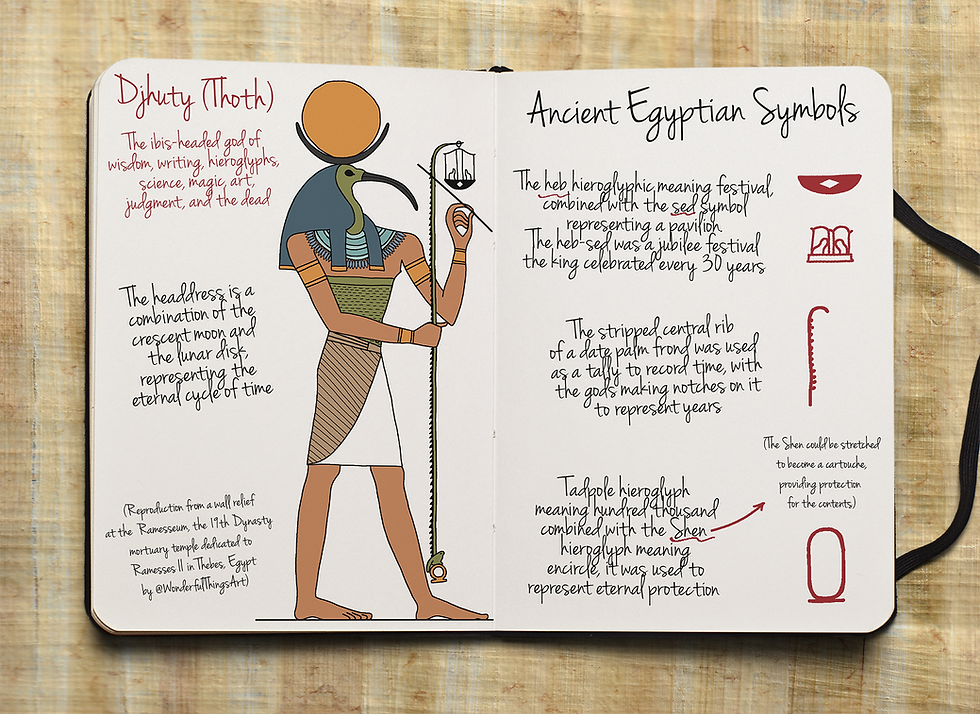 Djhuty (Thoth)
The ibis-headed god of
wisdom, writing, hieroglyphs,
science, magic, art,
judgment, and the dead
The headdress is a
combination of the
crescent moon and
the lunar disk,
representing the
eternal cycle of time
(Reproduction from a wall relief
at the Ramesseum, the 19th Dynasty
mortuary temple dedicated to
Ramesses II in Thebes, Egypt
by @WonderfulThingsArt)
Ancient Egyptian Symbols
The heb hieroglyphic meaning festival,
combined with the sed symbol
representing a pavilion.
The heb-sed was a jubilee festival
the king celebrated every 30 years
The stripped central rib
of a date palm frond was used
as a tally to record time, with
the gods making notches on it
to represent years
(The Shen could be stretched
to become a cartouche,
providing protection
for the contents)
Tadpole hieroglyph
meaning hundred thousand
combined with the Shen
hieroglyph meaning
encircle, it was used to
represent eternal protection